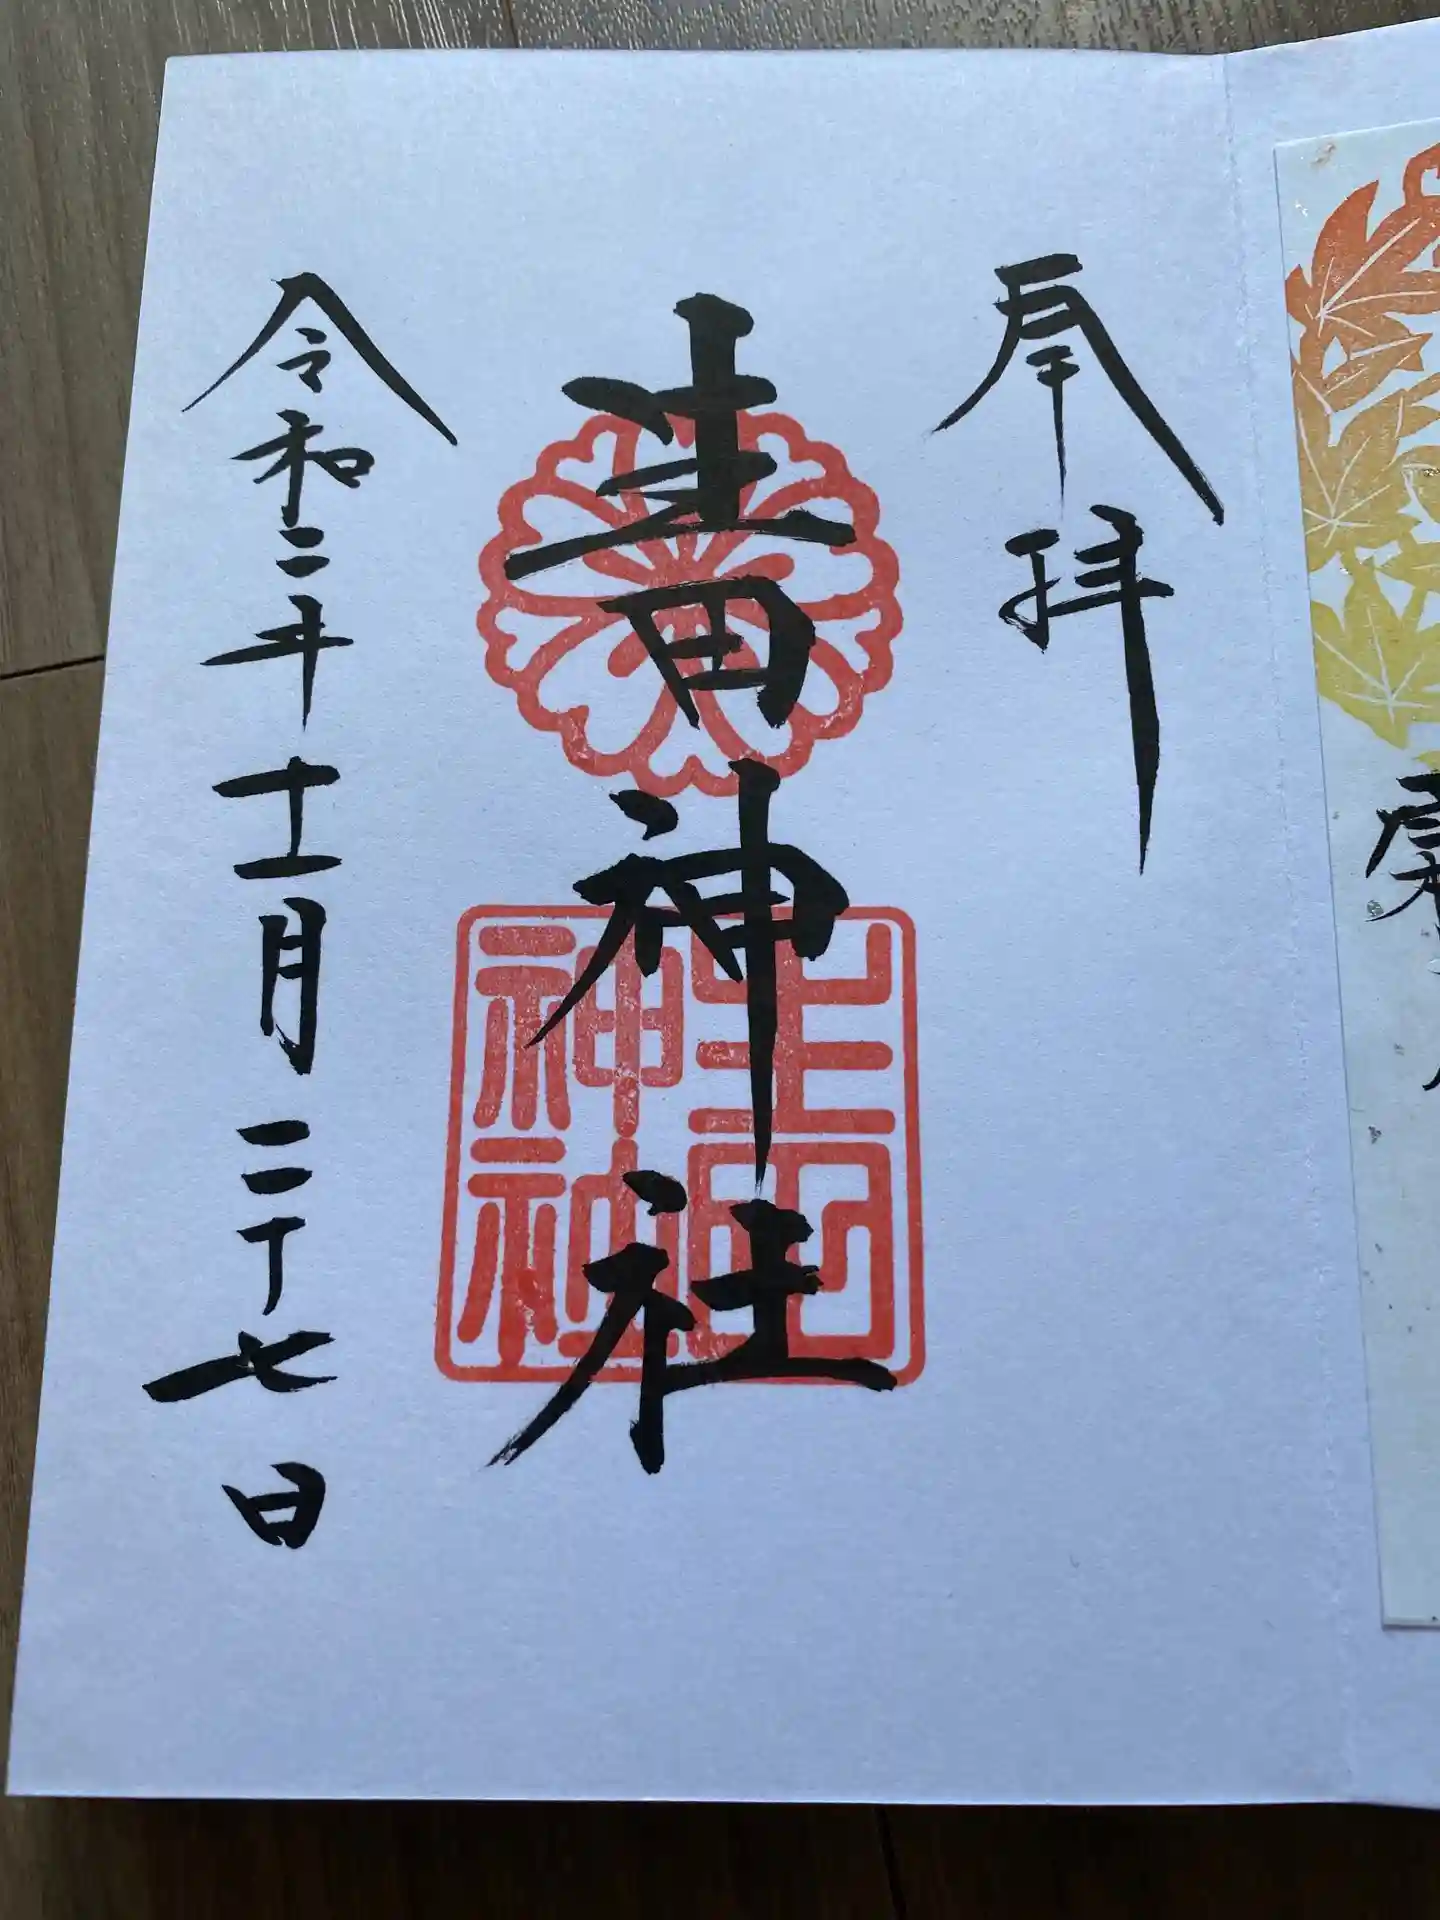 奉拝
生田神社
生田
神社
令和二年十一月二十七日